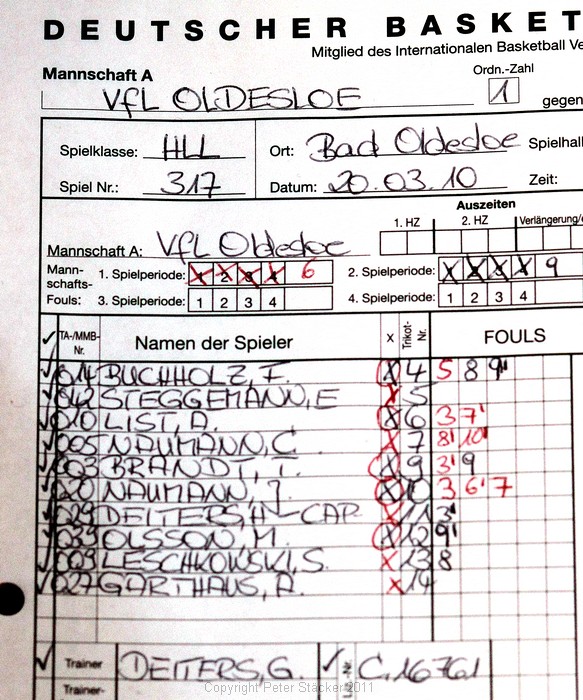 DEUTSCHER BASKET
Mitglied des Internationalen Basketball Ve
Mannschaft A Ordn.-Zahl
VfL OLDESLOE 1 gegen
Spielklasse: HLL Ort: Bad Oldesloe Spielhall
Spiel Nr.: 317 Datum: 20.03.10 Zeit:
Auszeiten
1. HZ 2. HZ Verlängerung/
Mannschaft A: VfL Oldesloe
Mann-schafts-Fouls: 1. Spielperiode: X 2 3 4 6 2. Spielperiode: X X X X 9
3. Spielperiode: 1 2 3 4 4. Spielperiode: 1 2 3 4
TA-/MMB-Nr. Namen der Spieler x Trikot-Nr. FOULS
014 BUCHHOLZ, F. X 4 5 8 9'
042 STEGGEMANN, E X 5
010 LIST, A. X 6 3 7'
005 NAUMANN, C X 7 8' 10'
003 BRANDT, T. X 9 3' 9
020 NAUMANN, J. X 10 3 6' 7
029 DEITERS, H - CAP X 11 3'
039 OLSSON, M. X 12 9'
009 LESCHKOWSKI, S. X 13 8
027 GARTHAUS, A. X 14
Trainer DEITERS, G. Liz.-Nr. C.16761
Trainer-
Copyright Peter Stäcker 2011